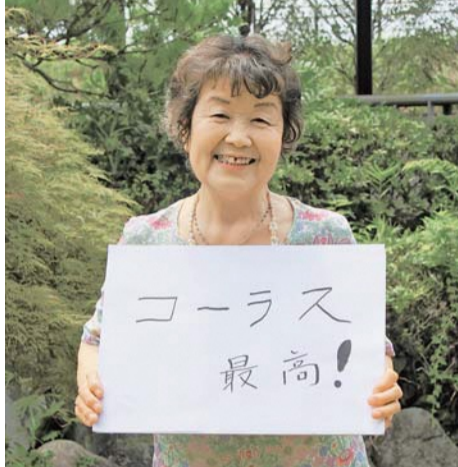 コーラス
最高!